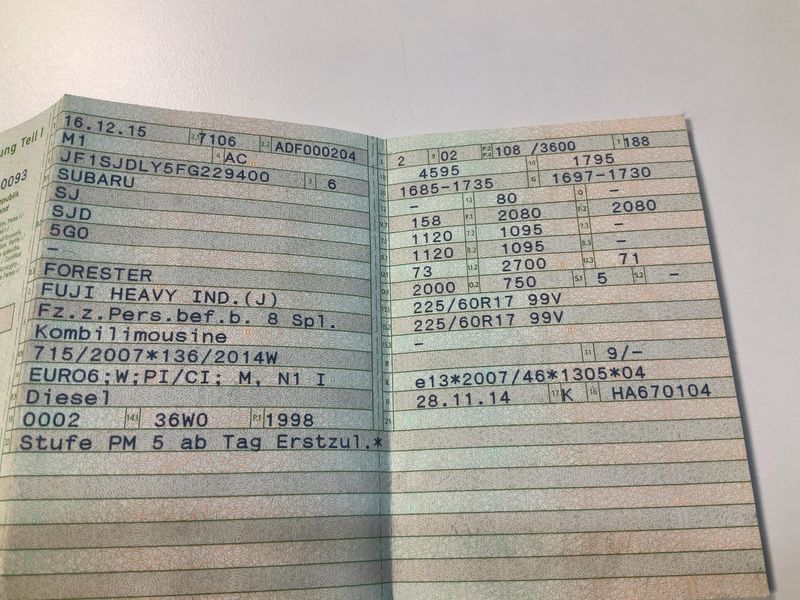 ung Teil I
0093
16.12.15 2.1 7106 2.2 ADF000204
M1 4 AC
JF1SJDLY5FG229400 3 6
SUBARU
SJ
SJD
5GO
–
FORESTER
FUJI HEAVY IND.(J)
Fz.z.Pers.bef.b. 8 Spl.
Kombilimousine
715/2007*136/2014W
EURO6;W;PI/CI; M, N1 I
Diesel
0002 14.1 36W0 P.1 1998
Stufe PM 5 ab Tag Erstzul.*
2 02 P.2 P.4 108 /3600 T 188
4595 1795
1685-1735 G 1697-1730
– 13 80 Q –
158 F.1 2080 F.2 2080
1120 7.2 1095 7.3 –
1120 8.2 1095 8.3 –
73 U.2 2700 U.3 71
2000 O.2 750 S.1 5 S.2 –
225/60R17 99V
225/60R17 99V
–
11 9/–
e13*2007/46*1305*04
28.11.14 17 K 16 HA670104